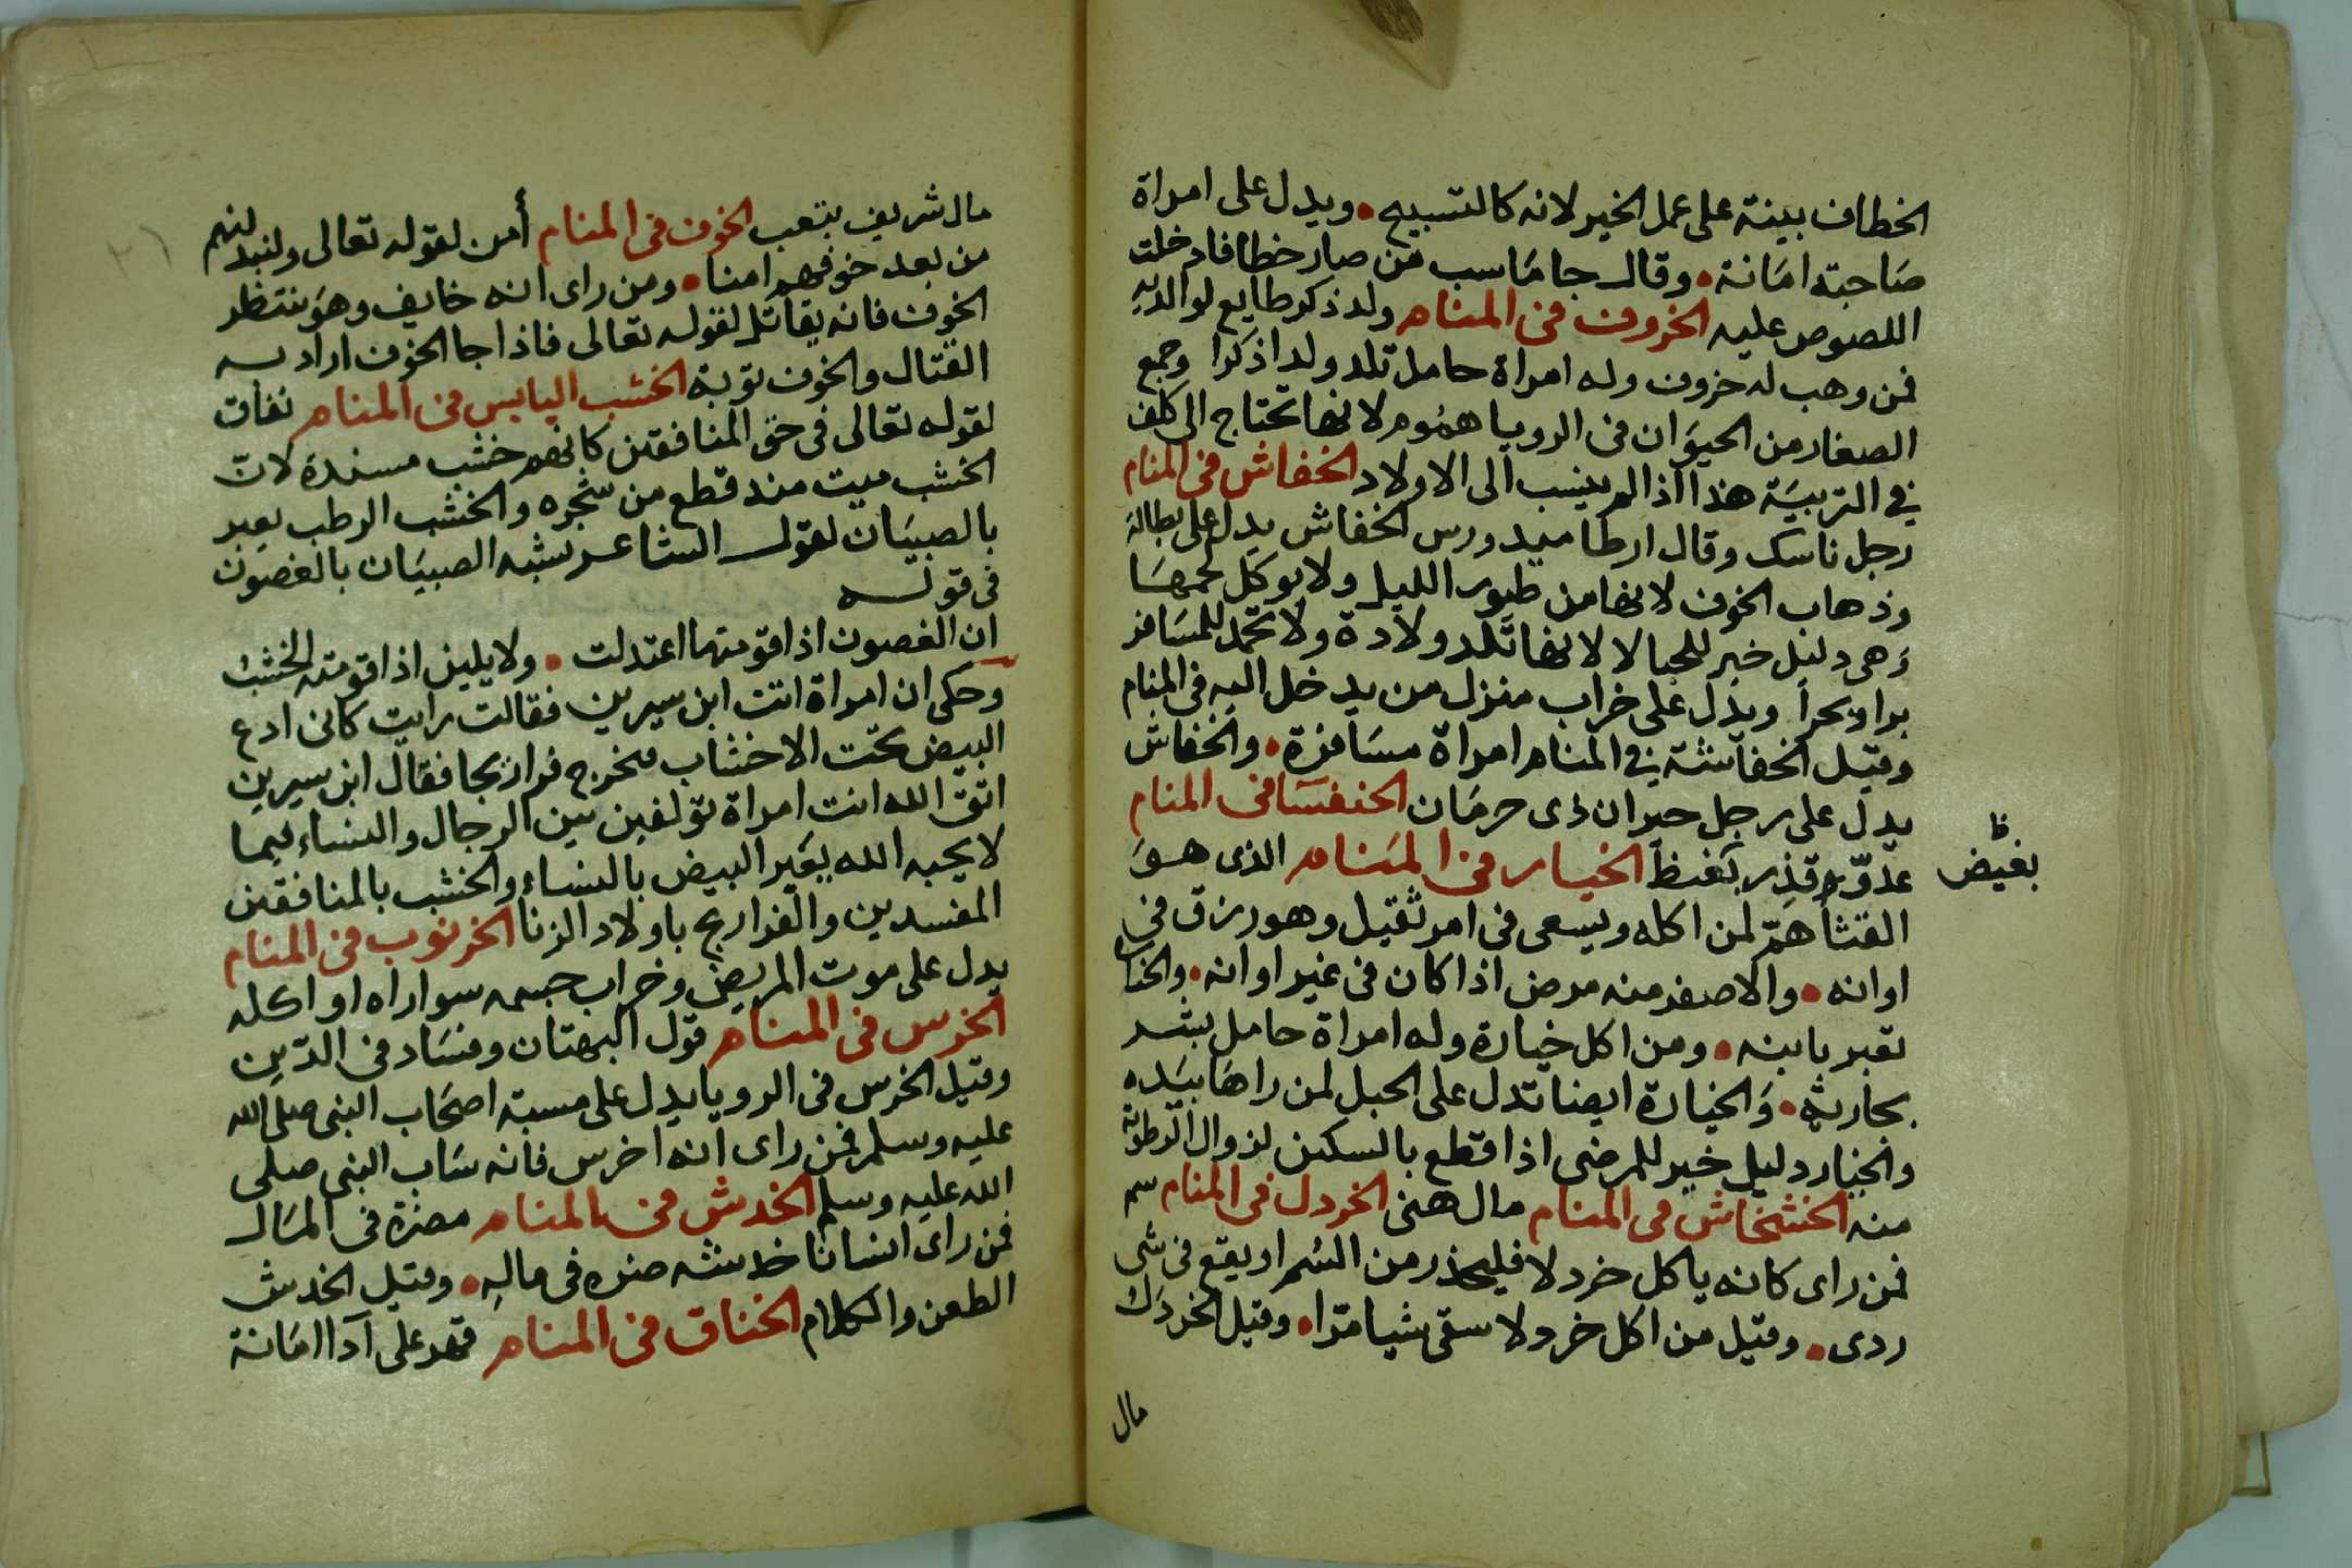 الخطاف بينة على عمل الخير لانه كالتسبيح • ويدل على امراة
صاحبته امانة • وقال جاماسب من صار خطافا دخلت
اللصوص عليه الخروف فى المنام ولد ذكر طايع لوالديه
فمن وهب له خروف وله امراة حامل تلد ولدا ذكرا وجمع
الصغار من الحيوان فى الرويا هموم لانها تحتاج الى كلف
في التربية هذا اذا لم ينسب الى الاولاد الخفاش فى المنام
رجل ناسك وقال ارطاميدورس الخفاش يدل على بطالة
وذهاب الخوف لانها من طيور الليل ولا يوكل لحمها
وهى دليل خير للحبالا لانها تلد ولادة ولا تحمد للمسافر
برا وبحرا ويدل على خراب منزل من يدخل اليه فى المنام
وقيل الخفاشة في المنام امراة مسافرة • والخفاش
يدل على رجل حيران ذى حرمان الخنفسا فى المنام
عدو قذر بغيظ الخيار فى المنام الذى هو
بغيض ظ
القثا هم لمن اكله ويسعى فى امر ثقيل وهو رزق فى
اوانه • والاصفر منه مرض اذا كان فى غير اوانه • والخيار
تعبر بابنه • ومن اكل خيارة وله امراة حامل بشر
بجارية • والخيارة ايضا تدل على الحبل لمن راها بيده
والخيار دليل خير للمرضى اذا قطع بالسكين لزوال الرطوبة
منه الخشخاش فى المنام مال هنى الخردل فى المنام سم
فمن راى كانه ياكل خردلا فليحذر من السم او يقع فى شى
ردى • وقيل من اكل خردلا سقى شيا مرا • وقيل الخردل
مال
مال شريف بتعب الخوف فى المنام أمن لقوله تعالى وليبدلنهم
من بعد خوفهم امنا • ومن راى انه خايف وهو ينتظر
الخوف فانه يقاتل لقوله تعالى فاذا جا الخوف اراد به
القتال والخوف توبة الخشب اليابس فى المنام نفاق
لقوله تعالى فى حق المنافقين كانهم خشب مسندة لان
الخشب ميت منذ قطع من شجره والخشب الرطب يعبر
بالصبيان لقول الشاعر يشبه الصبيان بالغصون
فى قوله
ان الغصون اذا قومتها اعتدلت • ولا يلين اذا قومته الخشب
وحكى ان امراة اتت ابن سيرين فقالت رايت كانى ادع
البيض تحت الاخشاب فتخرج فراريجا فقال ابن سيرين
اتقى الله انت امراة تولفين بين الرجال والنساء فيما
لا يحبه الله يعبر البيض بالنساء والخشب بالمنافقين
المفسدين والفراريج باولاد الزنا الخرنوب فى المنام
يدل على موت المريض وخراب جسمه سوا راه او اكله
الخرس فى المنام قول البهتان وفساد فى الدين
وقيل الخرس فى الرويا يدل على مسبة اصحاب النبى صلى الله
عليه وسلم فمن راى انه اخرس فانه ساب النبى صلى
الله عليه وسلم الخدش فى المنام مضرة فى المال
فمن راى انسانا خدشه ضره فى ماله • وقيل الخدش
الطعن والكلام الخناق فى المنام قهر على آدا امانة
٢٦